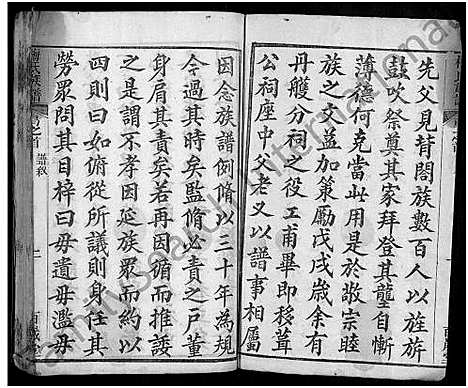 先父見背閤族數百人以旌旂
鼓吹祭奠其家拜登其壟自慚
薄德何克當此用是於敬宗睦
族之文益加策勵戊戌歲余有
丹艧分祠之役工甫畢即移葺
公祠座中父老又以譜事相屬
因念族譜例脩以三十年為規
今過其時矣監脩必責之戶董
身肩其責矣若再因循而推諉
之是謂不孝因延族眾而約以
四則身任其勞
勞眾問其目梓曰毋遺毋濫毋
如何使從所議則身任其
首之
譜敘
百歲堂
familysearch International